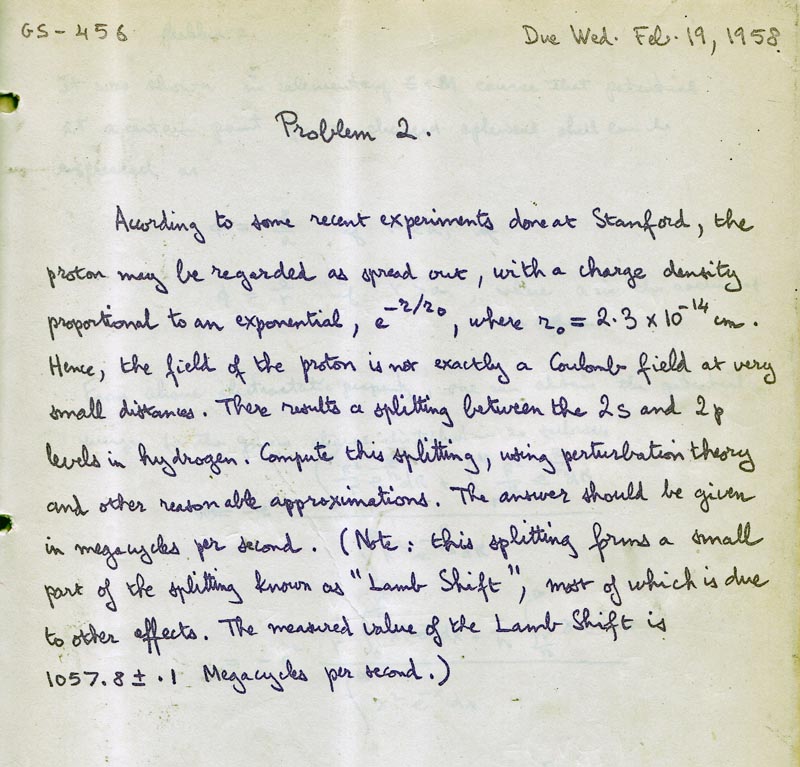 GS-456
Due Wed. Feb. 19, 1958
Problem 2.
According to some recent experiments done at Stanford, the
proton may be regarded as spread out, with a charge density
proportional to an exponential, e^{-r/r₀}, where r₀ = 2.3 x 10⁻¹⁴ cm.
Hence, the field of the proton is not exactly a Coulomb field at very
small distances. There results a splitting between the 2s and 2p
levels in hydrogen. Compute this splitting, using perturbation theory
and other reasonable approximations. The answer should be given
in megacycles per second. (Note: this splitting forms a small
part of the splitting known as "Lamb Shift", most of which is due
to other effects. The measured value of the Lamb Shift is
1057.8 ± .1 Megacycles per second.)